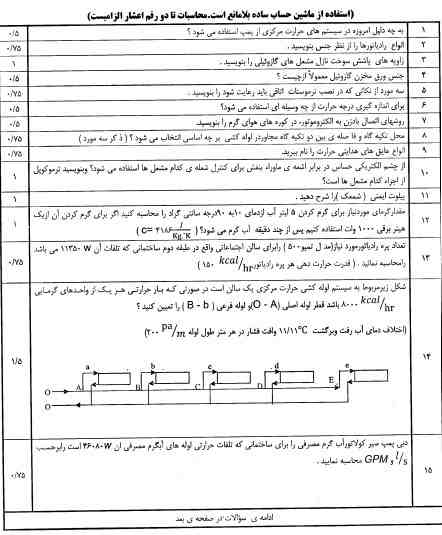 (استفاده از ماشین حساب ساده بلامانع است.محاسبات تا دو رقم اعشار الزامیست)
۱ به چه دلیل امروزه در سیستم های حرارت مرکزی از پمپ استفاده می شود ؟ ۰/۵
۲ انواع رادیاتورها را از نظر جنس بنویسید . ۰/۷۵
۳ زاویه های پاشش سوخت نازل مشعل های گازوئیلی را بنویسید . ۱
۴ جنس ورق مخزن گازوئیل معمولاً ازچیست ؟ ۰/۵
۵ سه مورد از نکاتی که در نصب ترموستات اتاقی باید رعایت شود را بنویسید . ۰/۷۵
۶ برای اندازه گیری درجه حرارت از چه وسیله ای استفاده می شود؟ ۰/۵
۷ روشهای اتصال بادزن به الکتروموتور، در کوره های هوای گرم را بنویسید. ۰/۵
۸ محل تکیه گاه و فا صله ی بین دو تکیه گاه مجاوردر لوله کشی بر چه اساسی انتخاب می شود ؟ ( ذ کر سه مورد ) ۰/۷۵
۹ انواع عایق های هدایتی حرارت را نام ببرید. ۰/۷۵
۱۰ از چشم الکتریکی حساس در برابر اشعه ی ماوراء بنفش برای کنترل شعله ی کدام مشعل ها استفاده می شود؟ وبنویسید ترموکوپل
از اجزاء کدام مشعل ها است؟ ۱
۱۱ پیلوت ایمنی ( شمعک )را شرح دهید . ۱
۱۲ مقدارگرمای موردنیاز برای گرم کردن ۵ لیتر آب ازدمای ۱۰به ۹۰درجه سانتی گراد را محاسبه کنید اگر برای گرم کردن آن ازیک
هیتر برقی ۱۰۰۰ وات استفاده کنیم پس از چند دقیقه آب گرم می شود؟ ( C= ۴۱۸۶ J/Kg.°K ) ۱
۱۳ تعداد پره رادیاتورمورد نیاز(مد ل تمبو۵۰۰ ) رابرای سالن اجتماعاتی واقع در طبقه دوم ساختمانی که تلفات آن ۱۱۳۵۰ W می باشد
رامحاسبه نمائید . ( قدرت حرارت دهی هر پره رادیاتور kcal/hr ۱۵۰ ) ۰/۷۵
۱۴ شکل زیرمربوط به سیستم لوله کشی حرارت مرکزی یک سالن است در صورتی که بار حرارتی هر یک از واحدهای گرمایی
۸۰۰۰ kcal/hr باشد قطر لوله اصلی (O - A)و لوله فرعی ( B - b ) را تعیین کنید ؟
(اختلاف دمای آب رفت وبرگشت ۱۱/۱۱°C وافت فشار در هر متر طول لوله ۲۰۰ pa/m) ۱/۵
a b c d e
O A B C D E
O
۱۵ دبی پمپ سیر کولاتورآب گرم مصرفی را برای ساختمانی که تلفات حرارتی لوله های آبگرم مصرفی آن ۴۶۰۸۰ W است رابرحسب
l/s و GPM محاسبه نمایید . ۰/۷۵
ادامه ی سؤالات در صفحه ی بعد